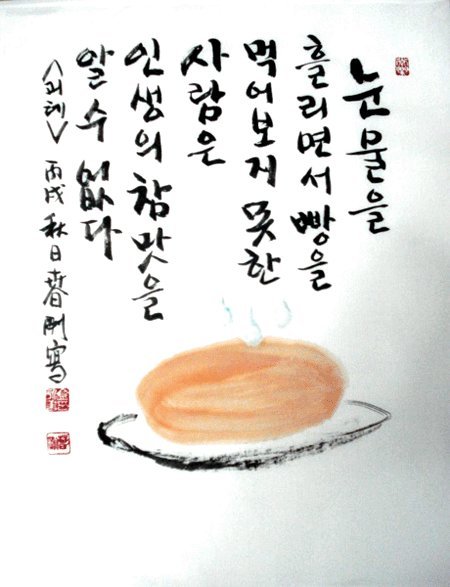 눈물을
흘리면서 빵을
먹어보지 못한
사람은
인생의 참맛을
알 수 없다
<괴테> 丙戌 秋日 春剛 寫